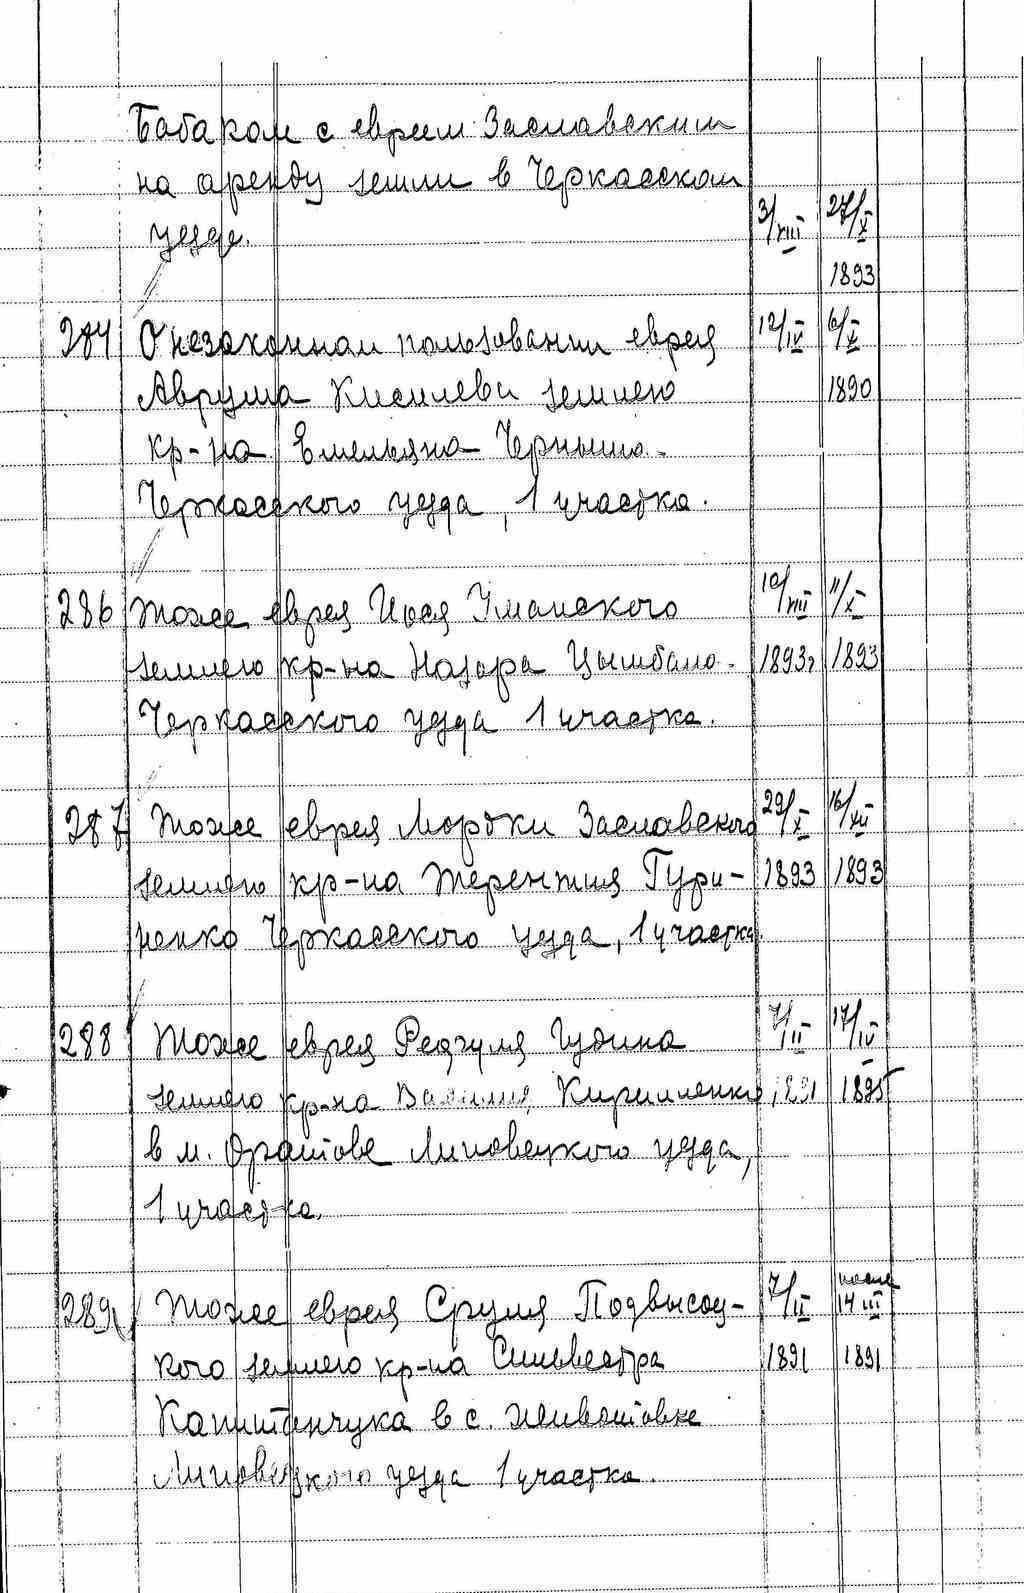 Бабаком с евреем Заславским
на аренду земли в Черкасском
уезде. 3/VIII 27/X
1893
284 О незаконном пользовании еврея 12/IV 6/X
Аврума Киселева землею 1890
кр-на Емельяна Черныша.
Черкасского уезда, 1 участка.
286 Тоже еврея Иося Уманского 10/VIII 11/X
землею кр-на Назара Цымбала. 1893г 1893
Черкасского уезда 1 участка.
287 Тоже еврея Мордки Заславского 29/X 16/XII
землею кр-на Терентия Гури- 1893 1893
ненко Черкасского уезда, 1 участка.
288 Тоже еврея Гудина 7/II 17/IV
землею кр-на Василия Кириленко 1891 1895
в м. Оратове Липовецкого уезда,
1 участка.
289 Тоже еврея Сруля Подвысоц- 7/II после 14 III
кого землею кр-на Сильвестра 1891 1891
Капитанчука в с. Животовке
Липовецкого уезда 1 участка.